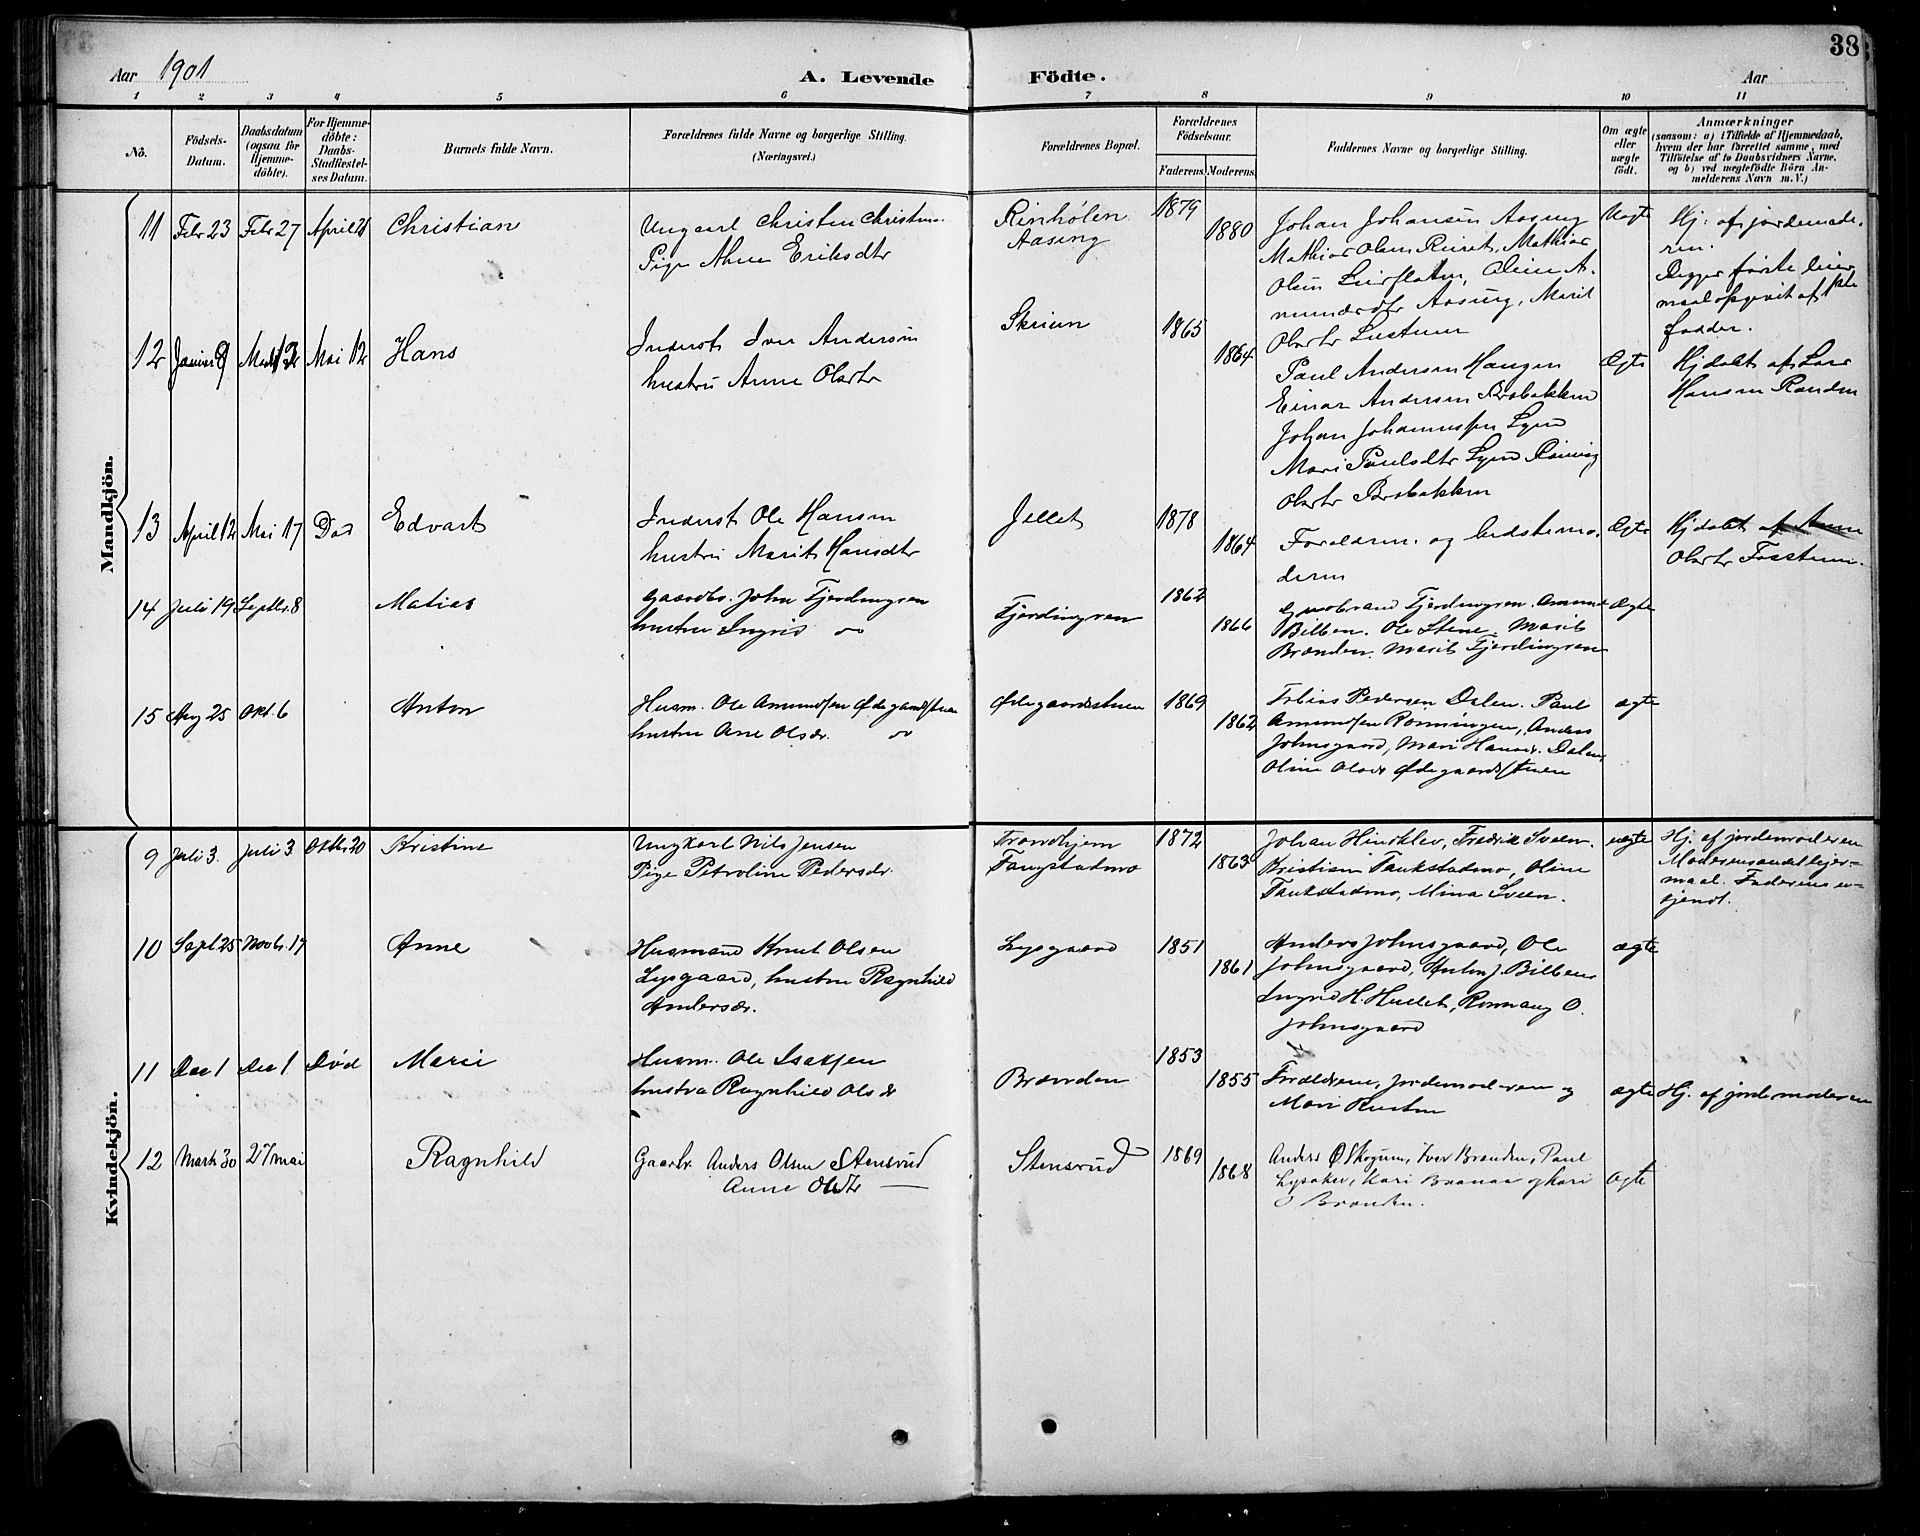 38
Aar 1901
A. Levende
Födte.
Aar
1 2 3 4 5 6 7 8 9 10 11
No.
Födsels-
Datum.
Daabsdatum
(ogsaa for
Hjemme-
döbte).
For Hjemme-
döbte:
Daabs-
Stadfæstel-
ses Datum.
Barnets fulde Navn.
Forældrenes fulde Navne og borgerlige Stilling.
(Næringsvei.)
Forældrenes Bopæl.
Forældrenes
Födselsaar.
Faderens. Moderens.
Faddernes Navne og borgerlige Stilling.
Om ægte
eller
uægte
födt.
Anmærkninger
(saasom: a) i Tilfælde af Hjemmedaab,
hvem der har forrettet samme, med
Tilföielse af to Daabsvidners Navne,
og b) ved uægtefödte Börn An-
melderens Navn m. V.)
Mandkjön.
11 Febr 23 Febr 27 April 21 Christian
Ungkarl Christen Christens.
Pige Anne Eriksdtr
Rinhølen
Aasing
1879
1880
Johan Johansen Aasing
Mathias Olsen Mathias
Olsen Leirflaten,
Aasing, Marit
Olsdtr
Uægte
Hj: af jordemode-
ren.
Begges første leier
maal opgivet af 1ste
fadder.
12 Januar 9 Mai 12 Hans
Inderst Iver Andersen
hustru Anne Olsdtr
Skriun
1865
1864
Paul Andersen Haugen
Einar Andersen Brobakken
Johan Johannessen
Mari Paulsdtr
Olsdtr Brobakken
Ægte
Hjdøbt af Lars
Hansen Randen
13 April 12 Mai 17 Død Edvart
Inderst Ole Hansen
hustru Marit Hansdtr
Jellet
1878
1864
Forældrene og bedstemo-
deren
Ægte
Hjdøbt af Anne
Olsdtr
14 Juli 19 Septbr. 8 Matias
Gaardbr. John Fjerdingren
hustru Ingrid
Fjerdingren
1862
1866
Gudbrand Fjerdingren. Amund
Bilben. Ole Stene. Marit
Brænden. Marit Fjerdingren
Ægte
15 Aug 25 Okt. 6 Anton
Husm. Ole Amundsen Ødegaardsstuen
hustru Ane Olsdr.
Ødegaardsstuen
1869
1862
Tobias Pedersen Dalen. Paul
Amundsen Rønningen, Anders
Johnsgaard, Mari Hansdr. Dalen,
Oline Olsdr Ødegaardsstuen
ægte
Kvindekjön.
9 Juli 3. Juli 3 Oktbr. 20 Kristine
Ungkarl Nils Jensen
Pige Petroline Pedersdr.
Trondhjem
Tangstadmo
1872
1863
Johan Hindklev, Fredrik Sveen.
Kristian Taukstadmo, Oline
Taukstadmo, Mina Sveen.
uægte
Hj. af jordemoderen
Moderens andet lejer-
maal. Faderens u-
kjendt.
10 Sept 25 Novbr. 17 Anne
Husmand Knut Olsen
Lysgaard, hustru Ragnhild
Andersdr.
Lysgaard
1851
1861
Anders Johnsgaard, Ole
Johnsgaard, Anton J. Bilben
Ingrid H. Hullet, Rønnaug O.
Johnsgaard
ægte
11 Dec 1 Dec 1 Død Marie
Husm. Ole Isaksen
hustru Ragnhild Olsdr
Brænden
1853
1855
Forældrene, jordemoderen og
Mari Rusten
ægte
Hj. af jordemoderen
12 Marts 30 27 mai Ragnhild
Gaarbr. Anders Olsen Stensrud
Anne Olsdtr —
Stensrud
1869
1868
Anders O Skogum, Iver Brænden, Paul
Lysaker, Kari og Kari
O Brænden.
Ægte